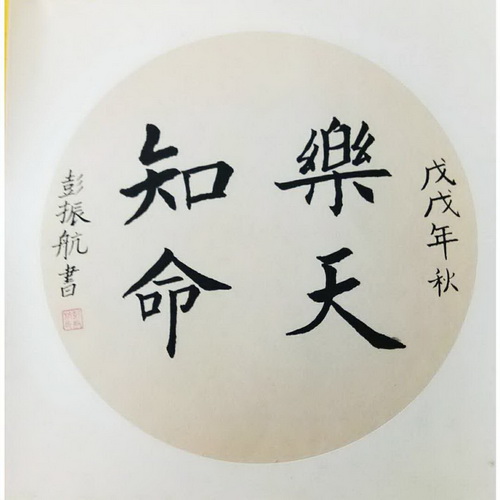 戊戌年秋
樂天
知命
彭振航書